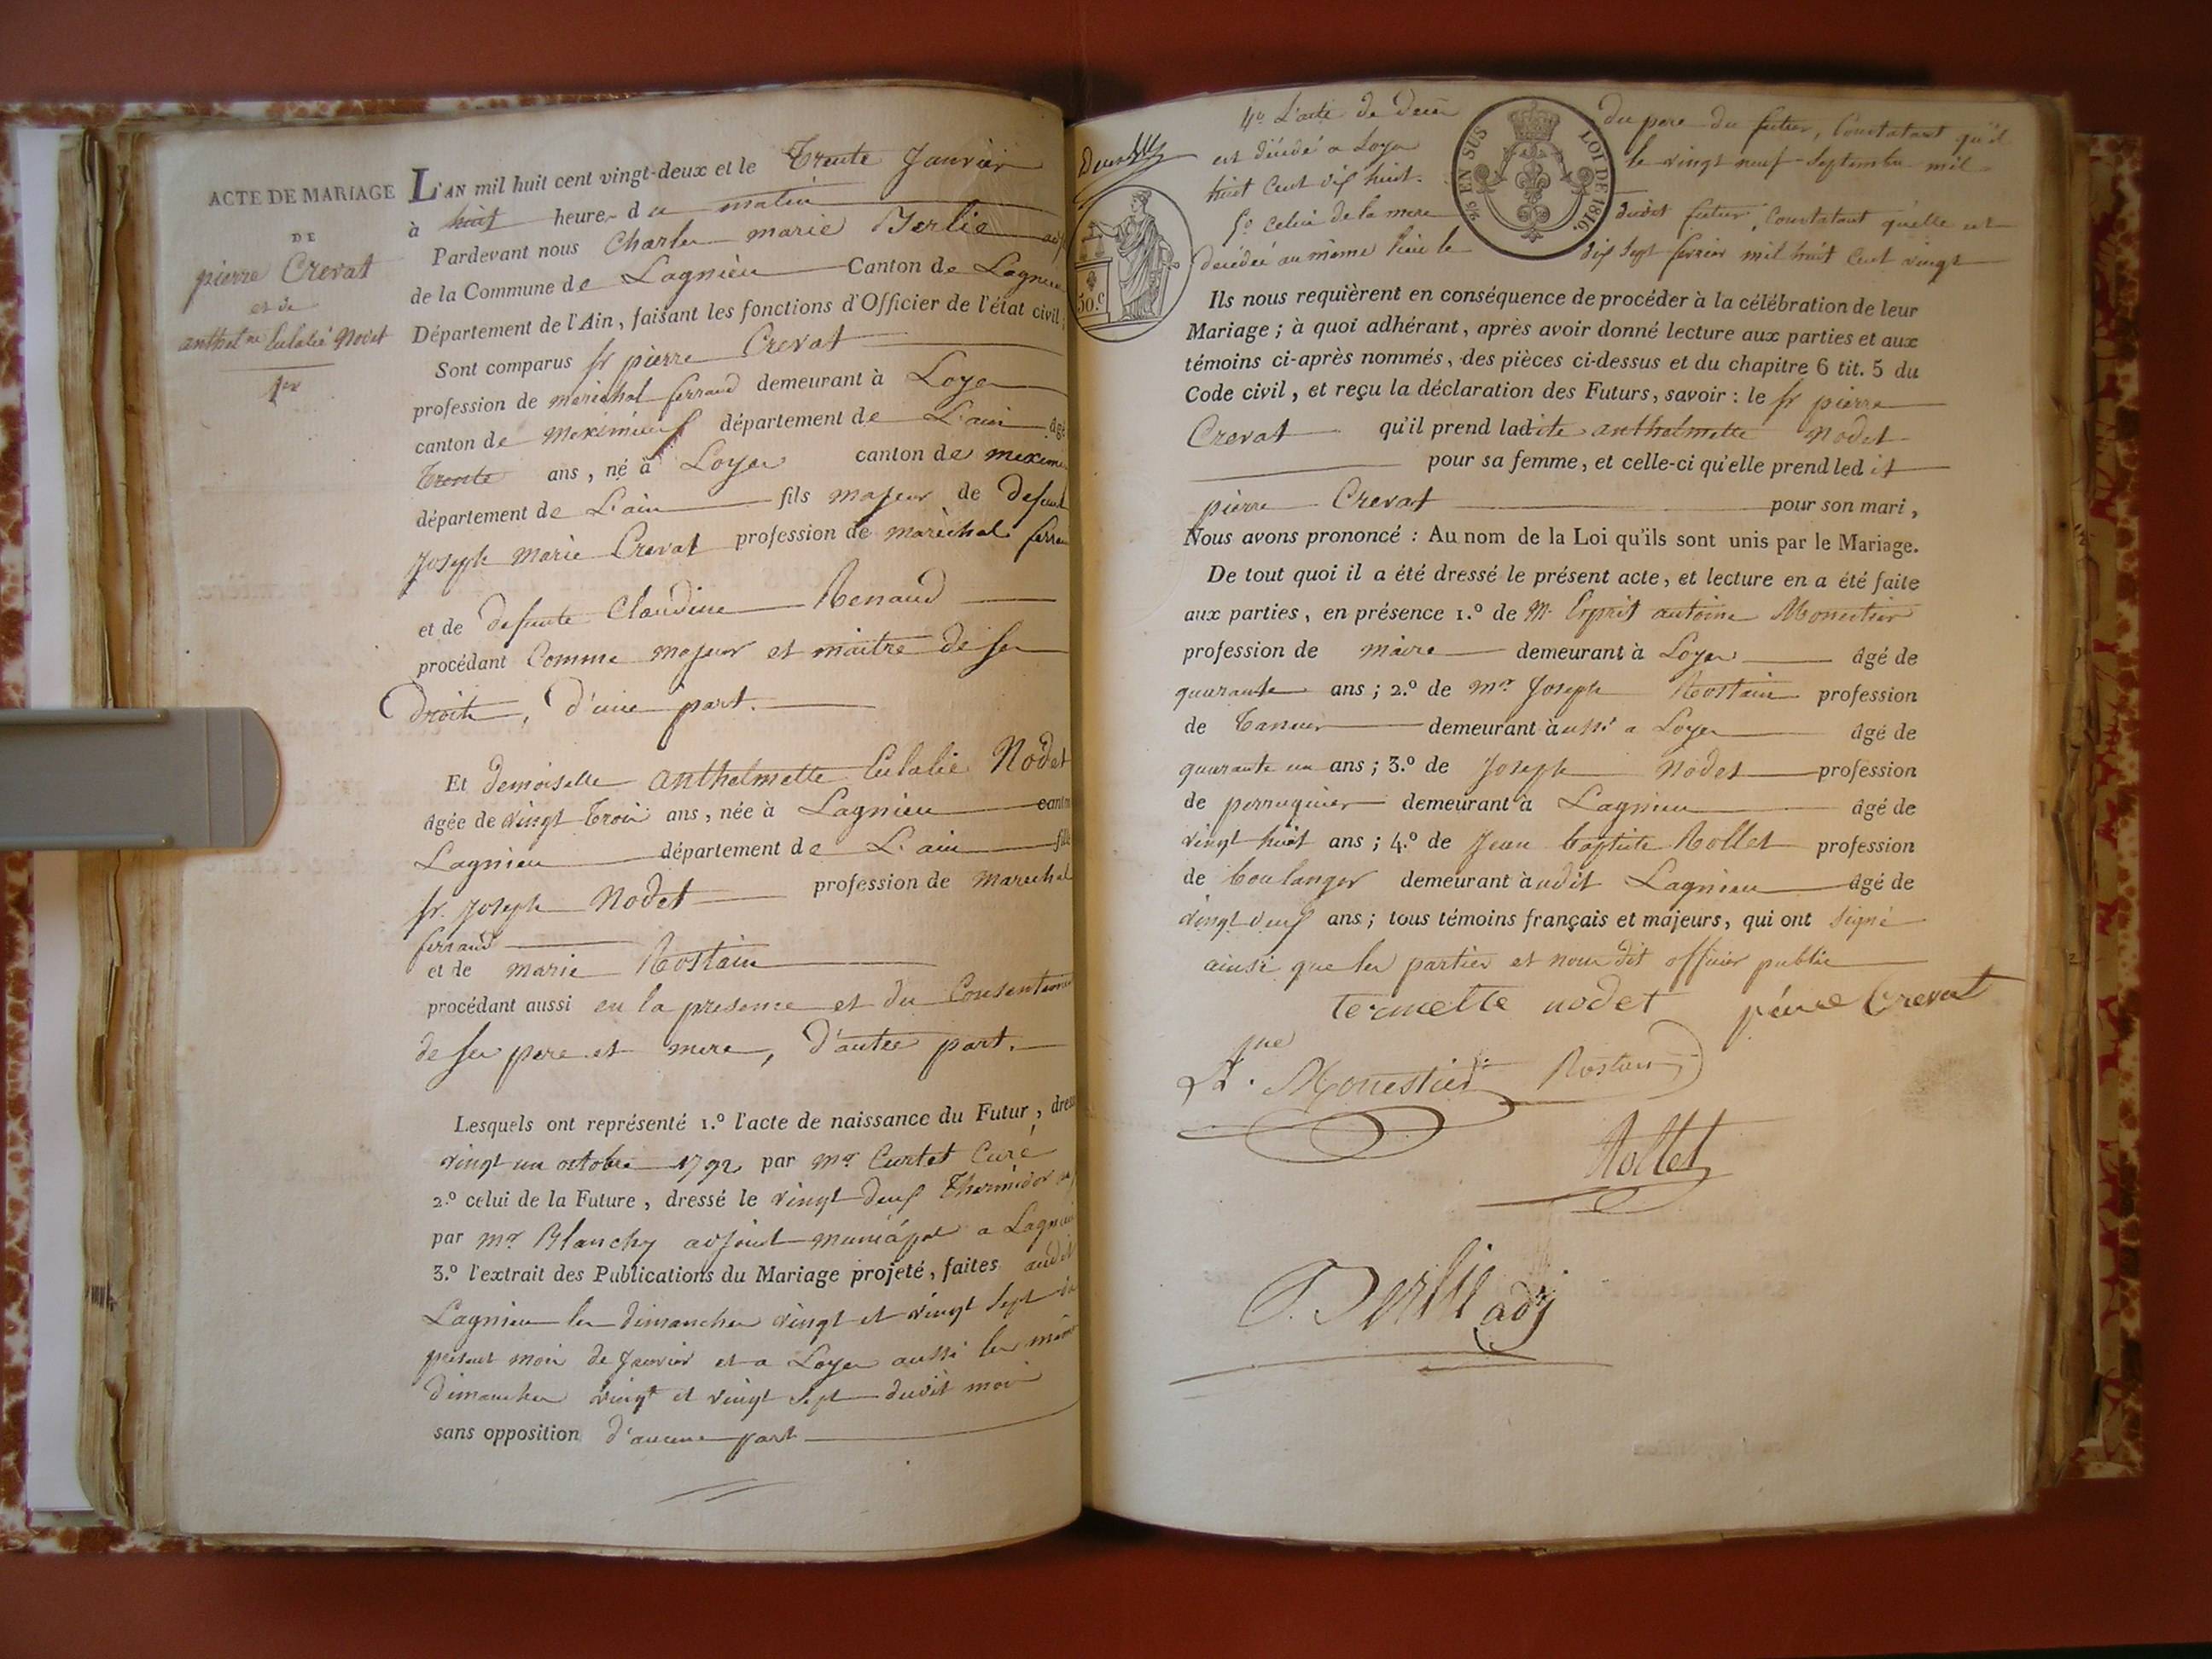 ACTE DE MARIAGE
DE
pierre Crevat
et de
anthel.me Eulalie Nodet
1er
L'AN mil huit cent vingt-deux et le Trente Janvier
à huit heures du matin
Pardevant nous Charles marie Berlie adj
de la Commune de Lagnieu Canton de Lagnieu
Département de l'Ain, faisant les fonctions d'Officier de l'état civil,
Sont comparus sr pierre Crevat
profession de maréchal ferrand demeurant à Loyes
canton de meximieux département de L'ain âgé
Trente ans, né à Loyes canton de mexim
département de L'ain fils majeur de defunt
Joseph Marie Crevat profession de maréchal ferra
et de defunte Claudine Renaud
procédant Comme majeur et maitre de ses
Droits, d'une part.
Et demoiselle anthelmette Eulalie Nodet
âgée de vingt Trois ans, née à Lagnieu canton
Lagnieu département de L'ain fille
sr. Joseph Nodet profession de marechal
ferrand
et de marie Rostain
procédant aussi en la presence et du Consentem
de ses pere et mere, d'autre part.
Lesquels ont représenté 1.º l'acte de naissance du Futur, dres
vingt un octobre 1792 par mr Curtet Curé
2.º celui de la Future, dressé le vingt deux Thermidor
par mr Blanchy adjoint municipal a Lagnieu
3.º l'extrait des Publications du Mariage projeté, faites audit
Lagnieu les dimanches vingt et vingt sept du
présent mois de Janvier et a Loyes aussi les mêmes
dimanches vingt et vingt sept dudit mois
sans opposition d'aucune part
4º L'acte de deces du pere du futur, Constatant qu'il
est décédé a Loyes le vingt neuf Septembre mil
huit Cent dix huit.
5º celui de la mere dudit futur, Constatant qu'elle est
décédée au même lieu le dix sept fevrier mil huit Cent vingt
EN SUS
LOI DE 1816.
50.c
Ils nous requièrent en conséquence de procéder à la célébration de leur
Mariage; à quoi adhérant, après avoir donné lecture aux parties et aux
témoins ci-après nommés, des pièces ci-dessus et du chapitre 6 tit. 5 du
Code civil, et reçu la déclaration des Futurs, savoir: le sr pierre
Crevat qu'il prend ladite anthelmette Nodet
pour sa femme, et celle-ci qu'elle prend ledit
pierre Crevat pour son mari,
Nous avons prononcé: Au nom de la Loi qu'ils sont unis par le Mariage.
De tout quoi il a été dressé le présent acte, et lecture en a été faite
aux parties, en présence 1.º de Mr Esprit antoine Monestier
profession de maire demeurant à Loyes âgé de
quarante ans; 2.º de mr Joseph Rostain profession
de Tanneur demeurant à ussi a Loyes âgé de
quarante un ans; 3.º de Joseph Nodet profession
de perruquier demeurant à Lagnieu âgé de
vingt huit ans; 4.º de Jean baptiste Rollet profession
de boulanger demeurant à udit Lagnieu âgé de
vingt deux ans; tous témoins français et majeurs, qui ont signé
ainsi que les parties et nous dit officier public
termette nodet pierre Crevat
A. Monestier Rostain
Rollet
Berlie adj